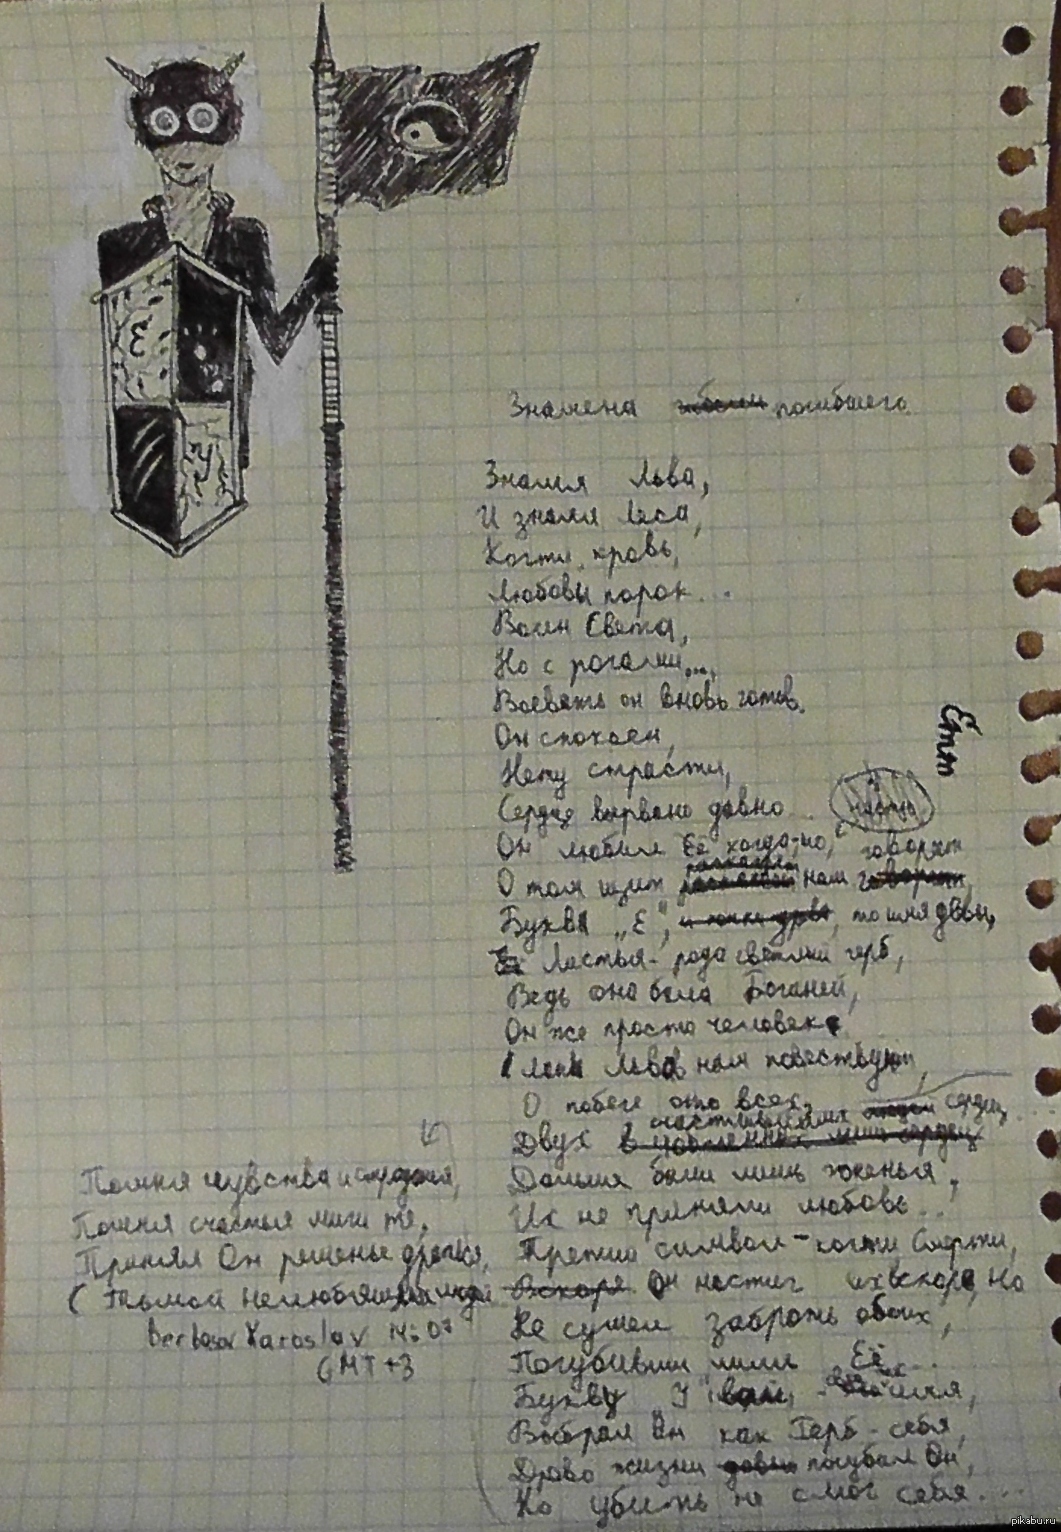 Знамена погибшего
Знамя Льва,
И знамя Леса,
Когти, кровь,
Любовь, порок...
Воин Света,
Но с рогами...,
Воевать он вновь готов.
Он спокоен,
Нету страсти,
Сердце вырвано давно...
Он любил Её когда-то, говорят
О том щит нам
Буква „Е",
Листья - рода светлый герб,
Ведь она была Богиней,
Он же просто человек
Льва нам повествуют,
О побеге ото всех,
Двух счастливейших сердец
Дальше были лишь
Их не приняли любовь...
Третий символ - когти Смерти,
Он настиг их вскоре, Но
Не сумел забрать обоих,
Погубивши лишь Её...
Букву „У"
Выбрал Он как Герб - себя,
Древо жизни погубил Он,
Но убить не смог себя...
Етт
Помня чувства
Помня счастья миги те,
Принял Он решенье драться,
С Тьмой
Yaroslav 14:07
GMT+3
Е
У
pikabu.ru